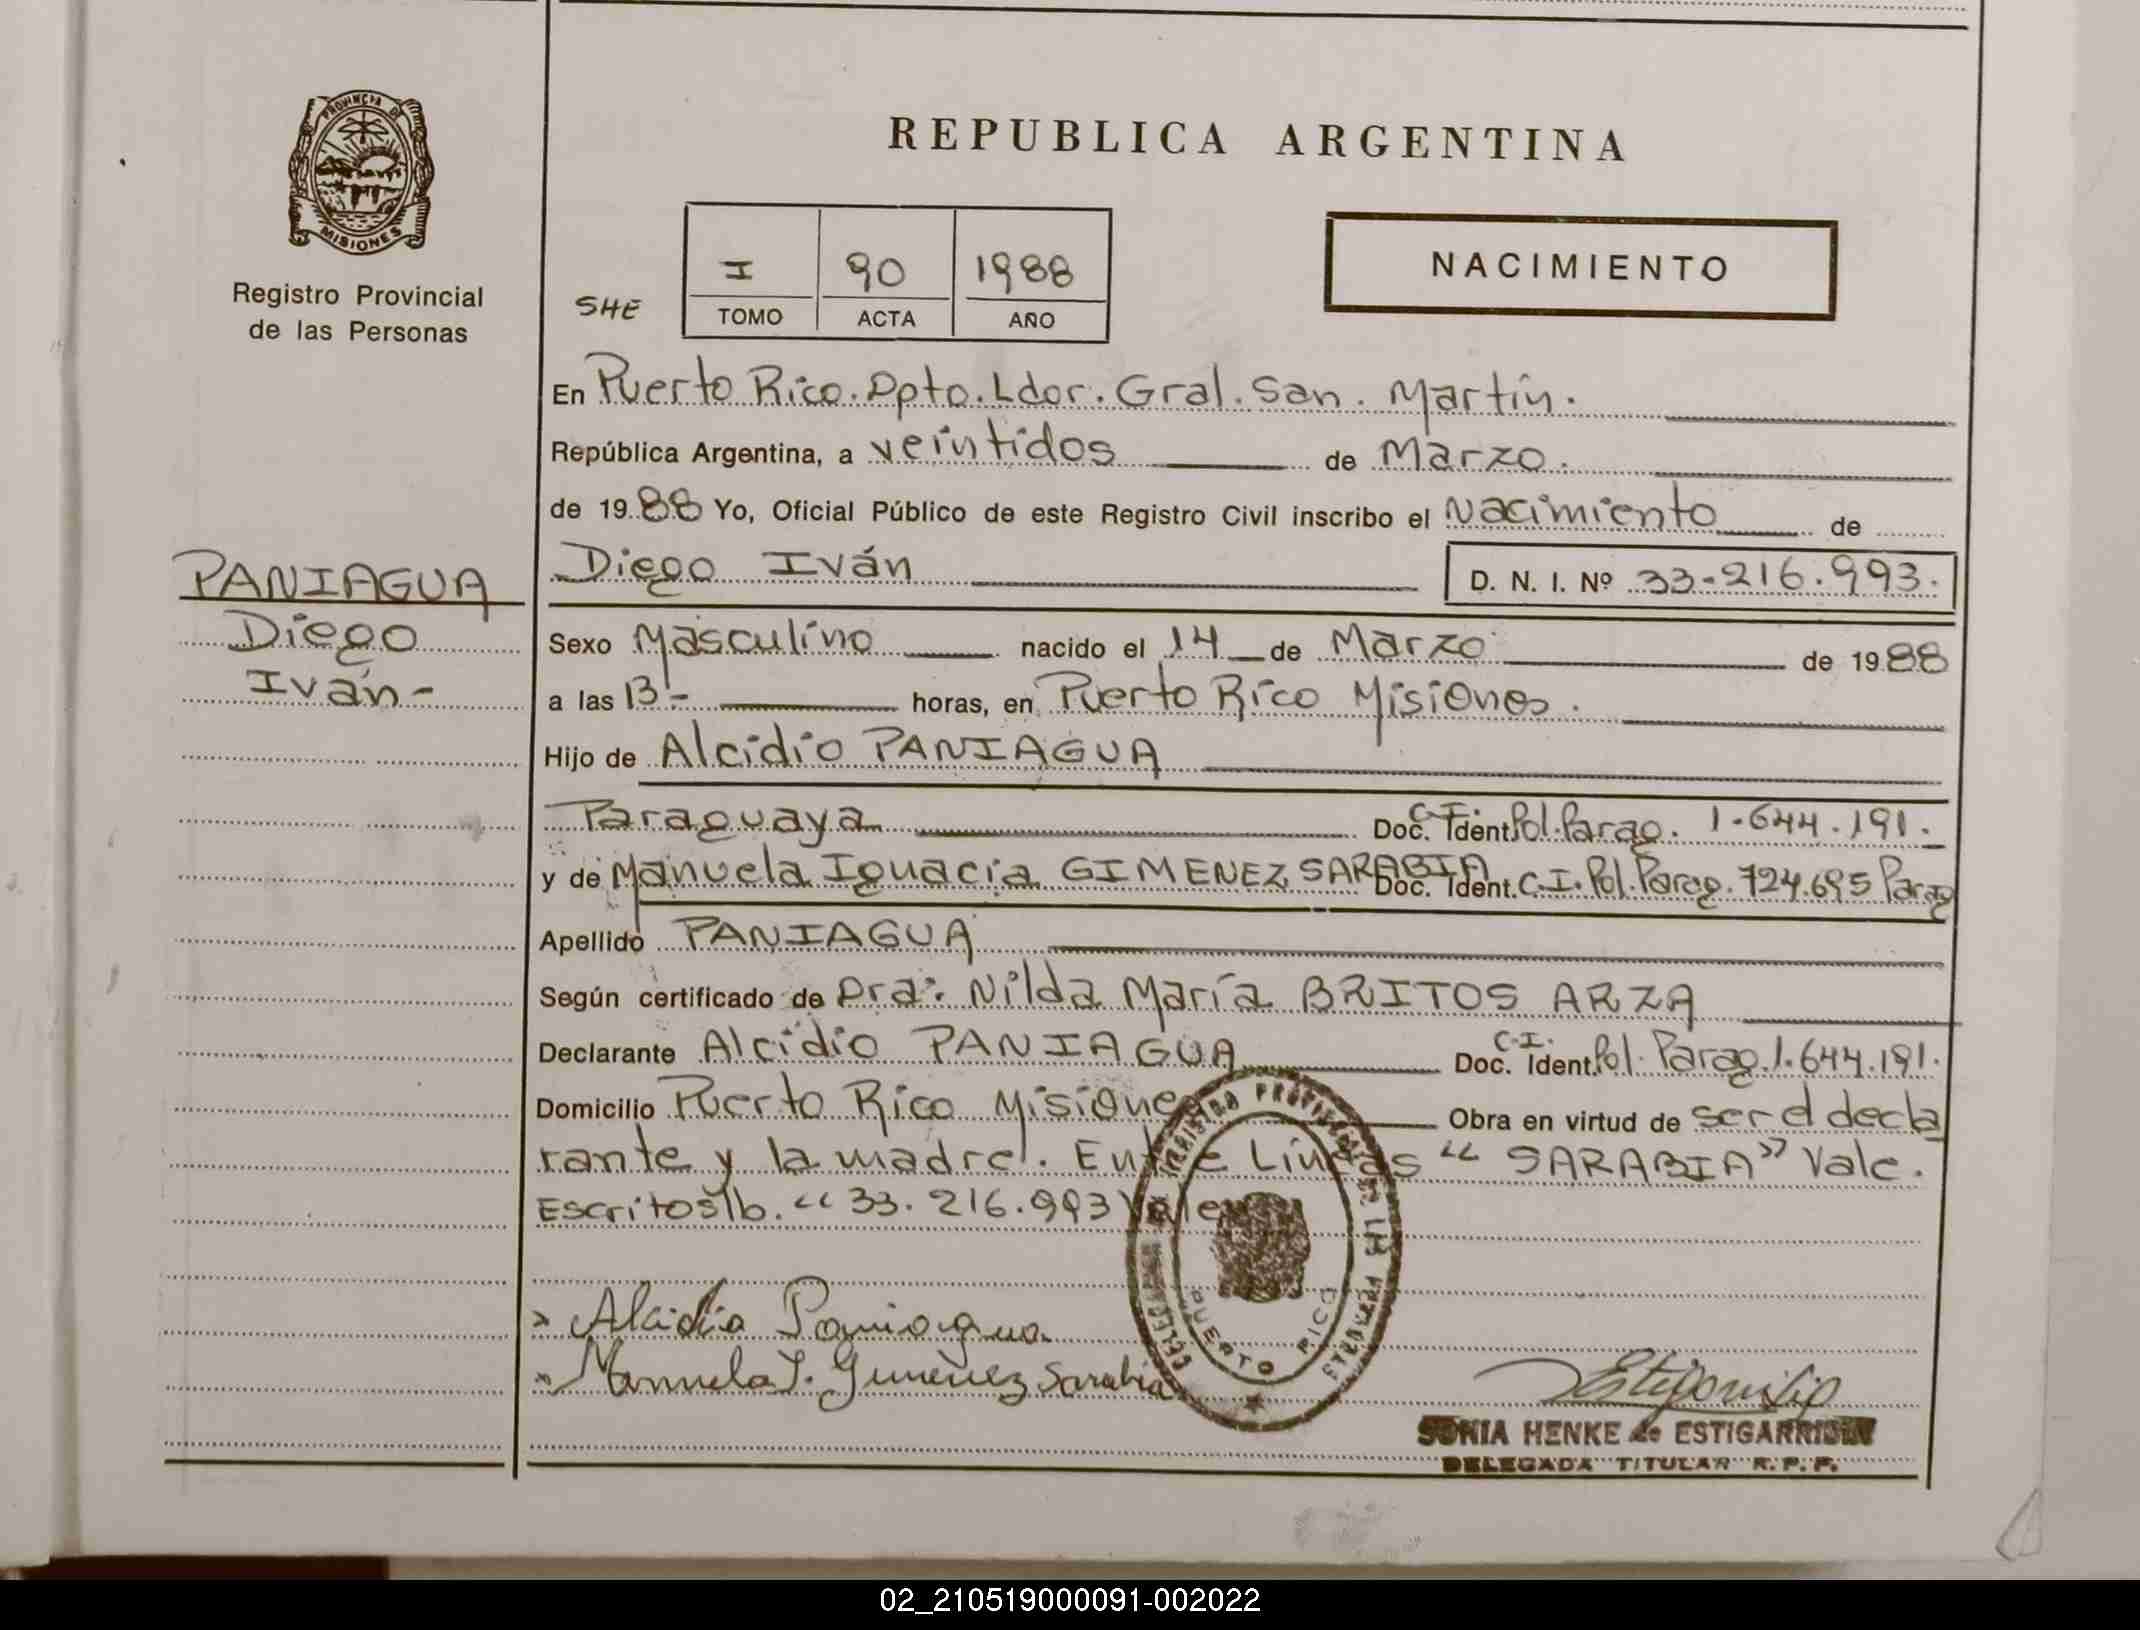 REPUBLICA ARGENTINA
PROVINCIA DE
MISIONES
Registro Provincial
de las Personas
SHE
I 90 1988
TOMO ACTA AÑO
NACIMIENTO
En Puerto Rico. Dpto. Ldor. Gral. San. Martín.
República Argentina, a veintidos de Marzo.
de 1988 Yo, Oficial Público de este Registro Civil inscribo el Nacimiento de
PANIAGUA
Diego
Iván-
Diego Iván D. N. I. Nº 33-216.993.
Sexo Masculino nacido el 14 de Marzo de 1988
a las 13- horas, en Puerto Rico Misiones.
Hijo de Alcidio PANIAGUA
Paraguaya Doc. Ident. C.I. Pol. Parag. 1.644.191.
y de Manuela Ignacia GIMENEZ SARABIA Doc. Ident. C.I. Pol. Parag. 724.695 Parag
Apellido PANIAGUA
Según certificado de Dra. Nilda María BRITOS ARZA
Declarante Alcidio PANIAGUA Doc. Ident. C.I. Pol. Parag. 1.644.191.
Domicilio Puerto Rico Misiones Obra en virtud de ser el decla
rante y la madre. Entre Líneas "SARABIA" Vale.
Escrito s/b. "33.216.993 Vale
PUERTO RICO
Alcidio Paniagua
Manuela I. Gimenez Sarabia
SONIA HENKE de ESTIGARRIBIA
DELEGADA TITULAR R.P.P.
02_210519000091-002022